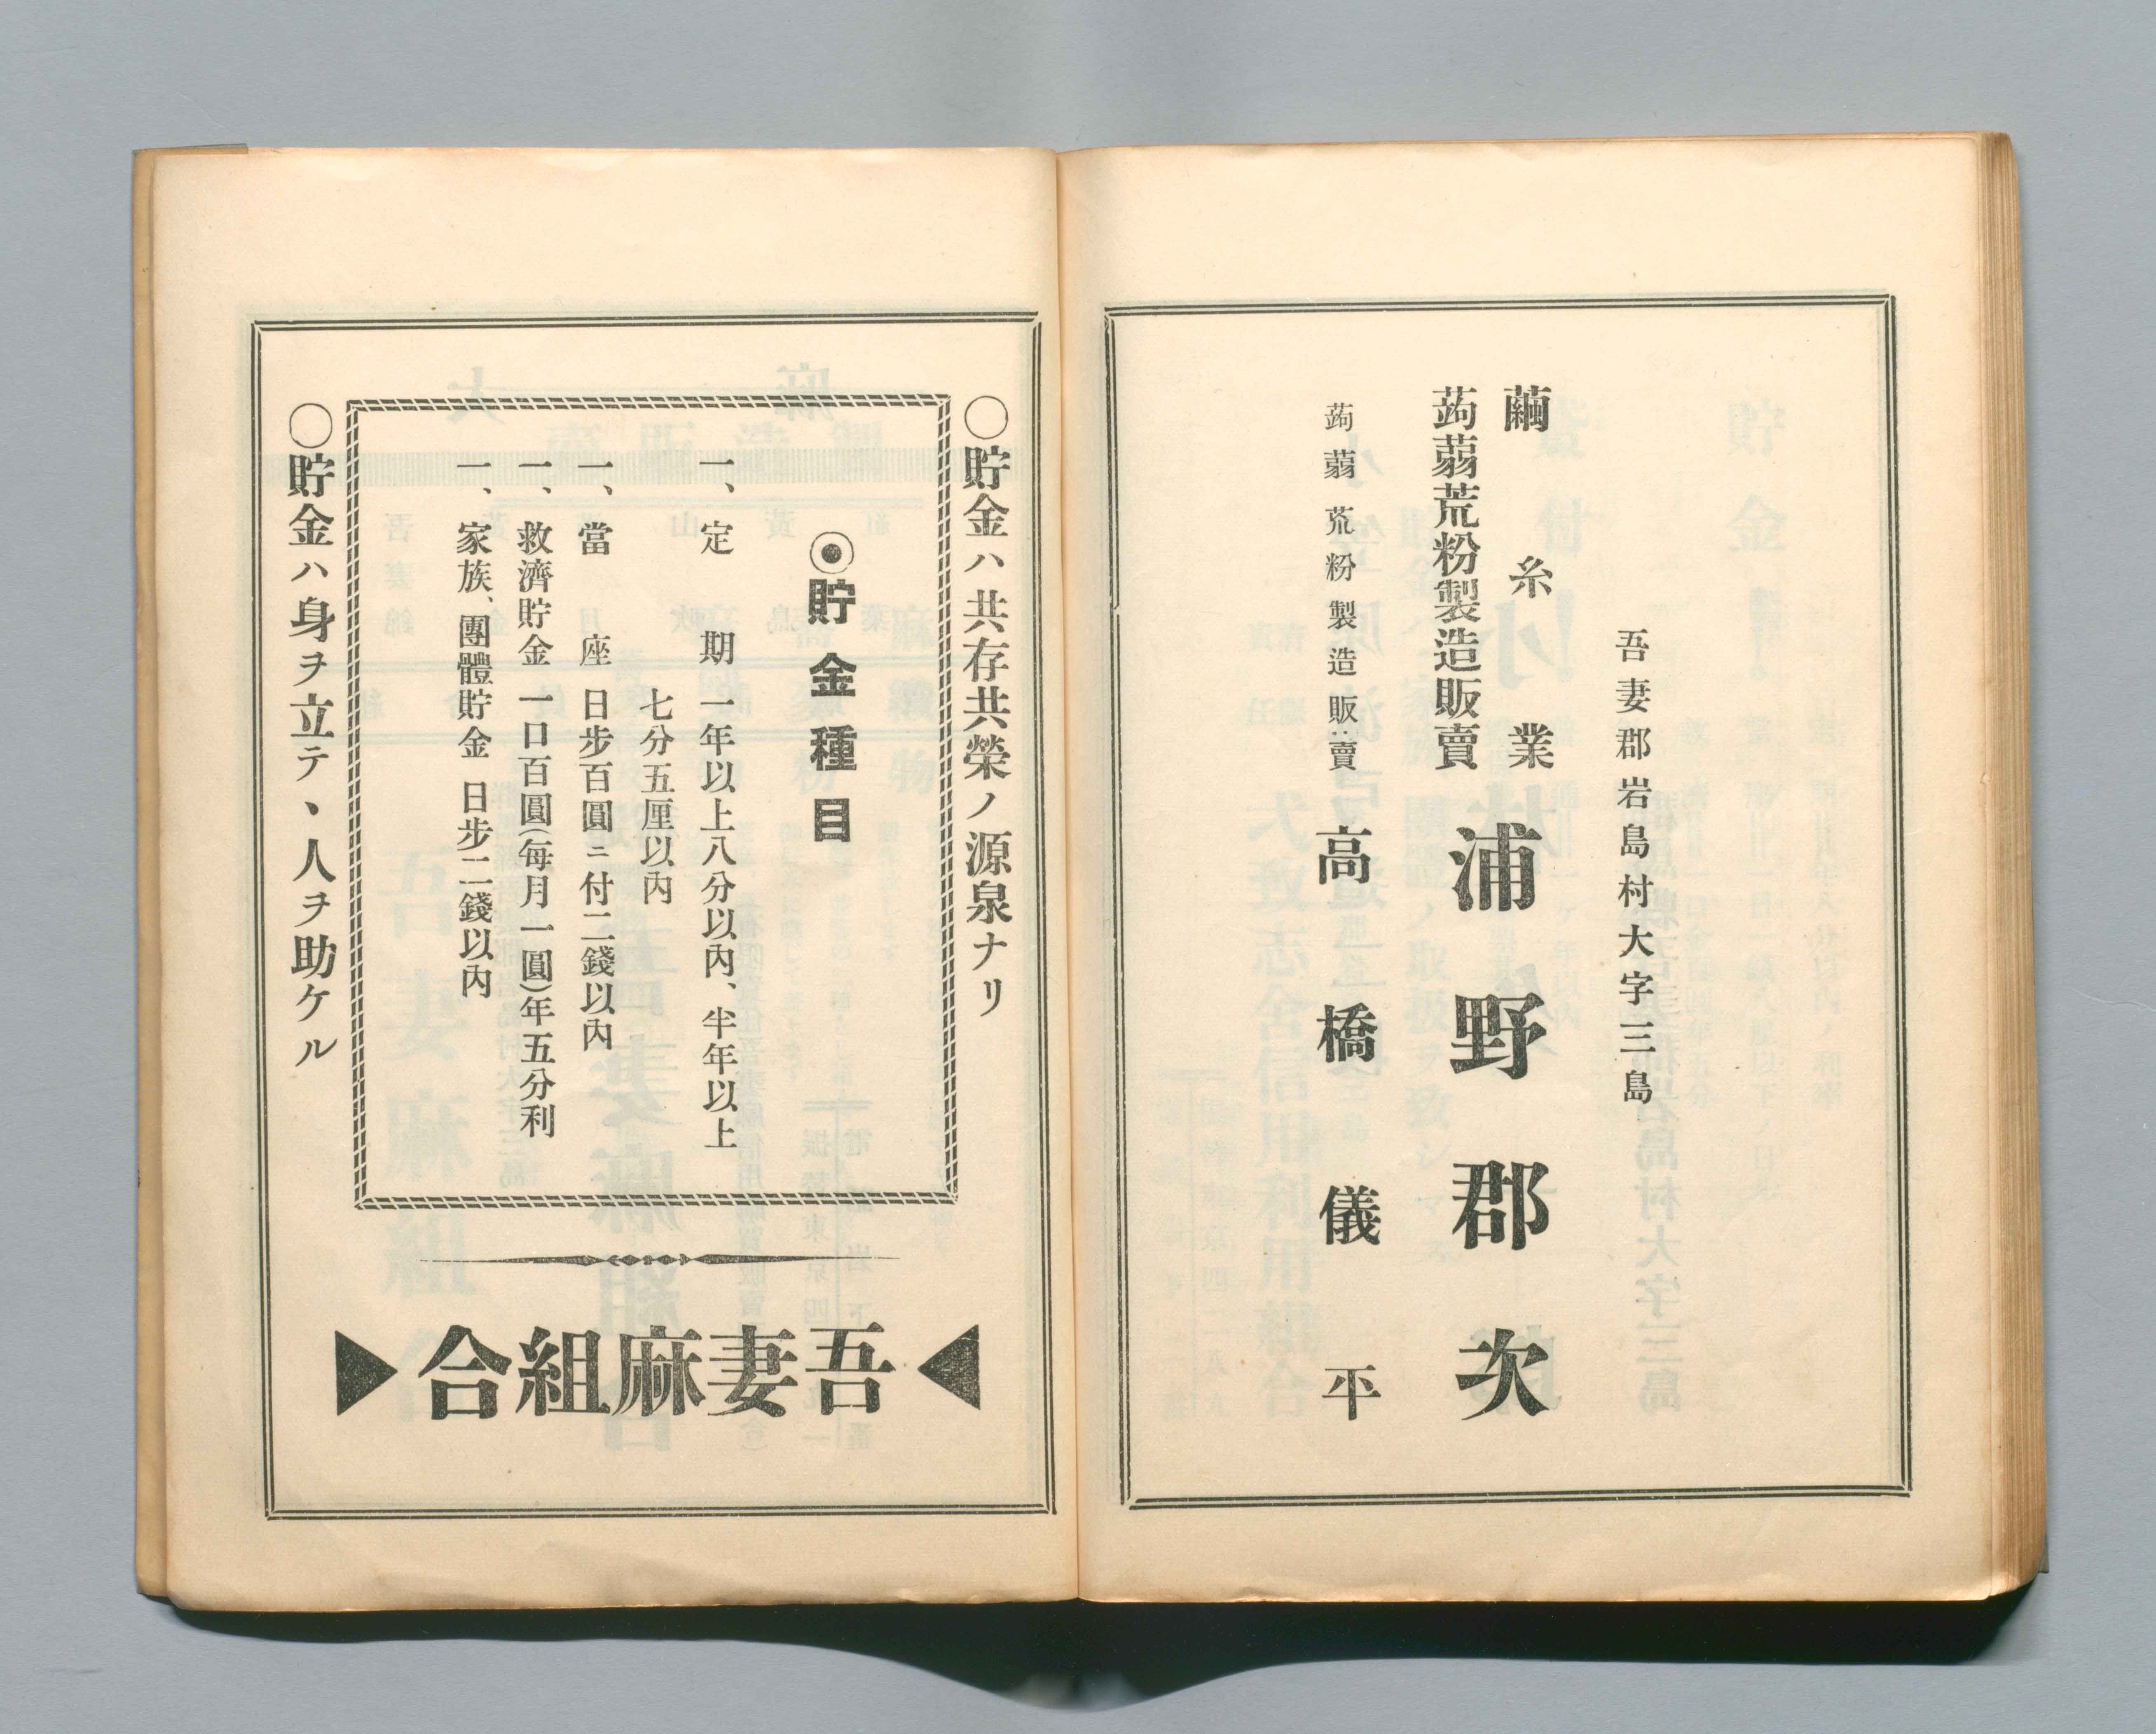 吾妻郡岩島村大字三島
繭糸業
蒟蒻荒粉製造販賣
浦野郡次
蒟蒻荒粉製造販賣
高橋儀平
○貯金ハ共存共榮ノ源泉ナリ
◉貯金種目
一、定期 一年以上八分以內、半年以上
七分五厘以內
一、當座 日步百圓ニ付二錢以內
一、救濟貯金 一口百圓(每月一圓)年五分利
一、家族、團體貯金 日步二錢以內
○貯金ハ身ヲ立テ、人ヲ助ケル
吾妻麻組合